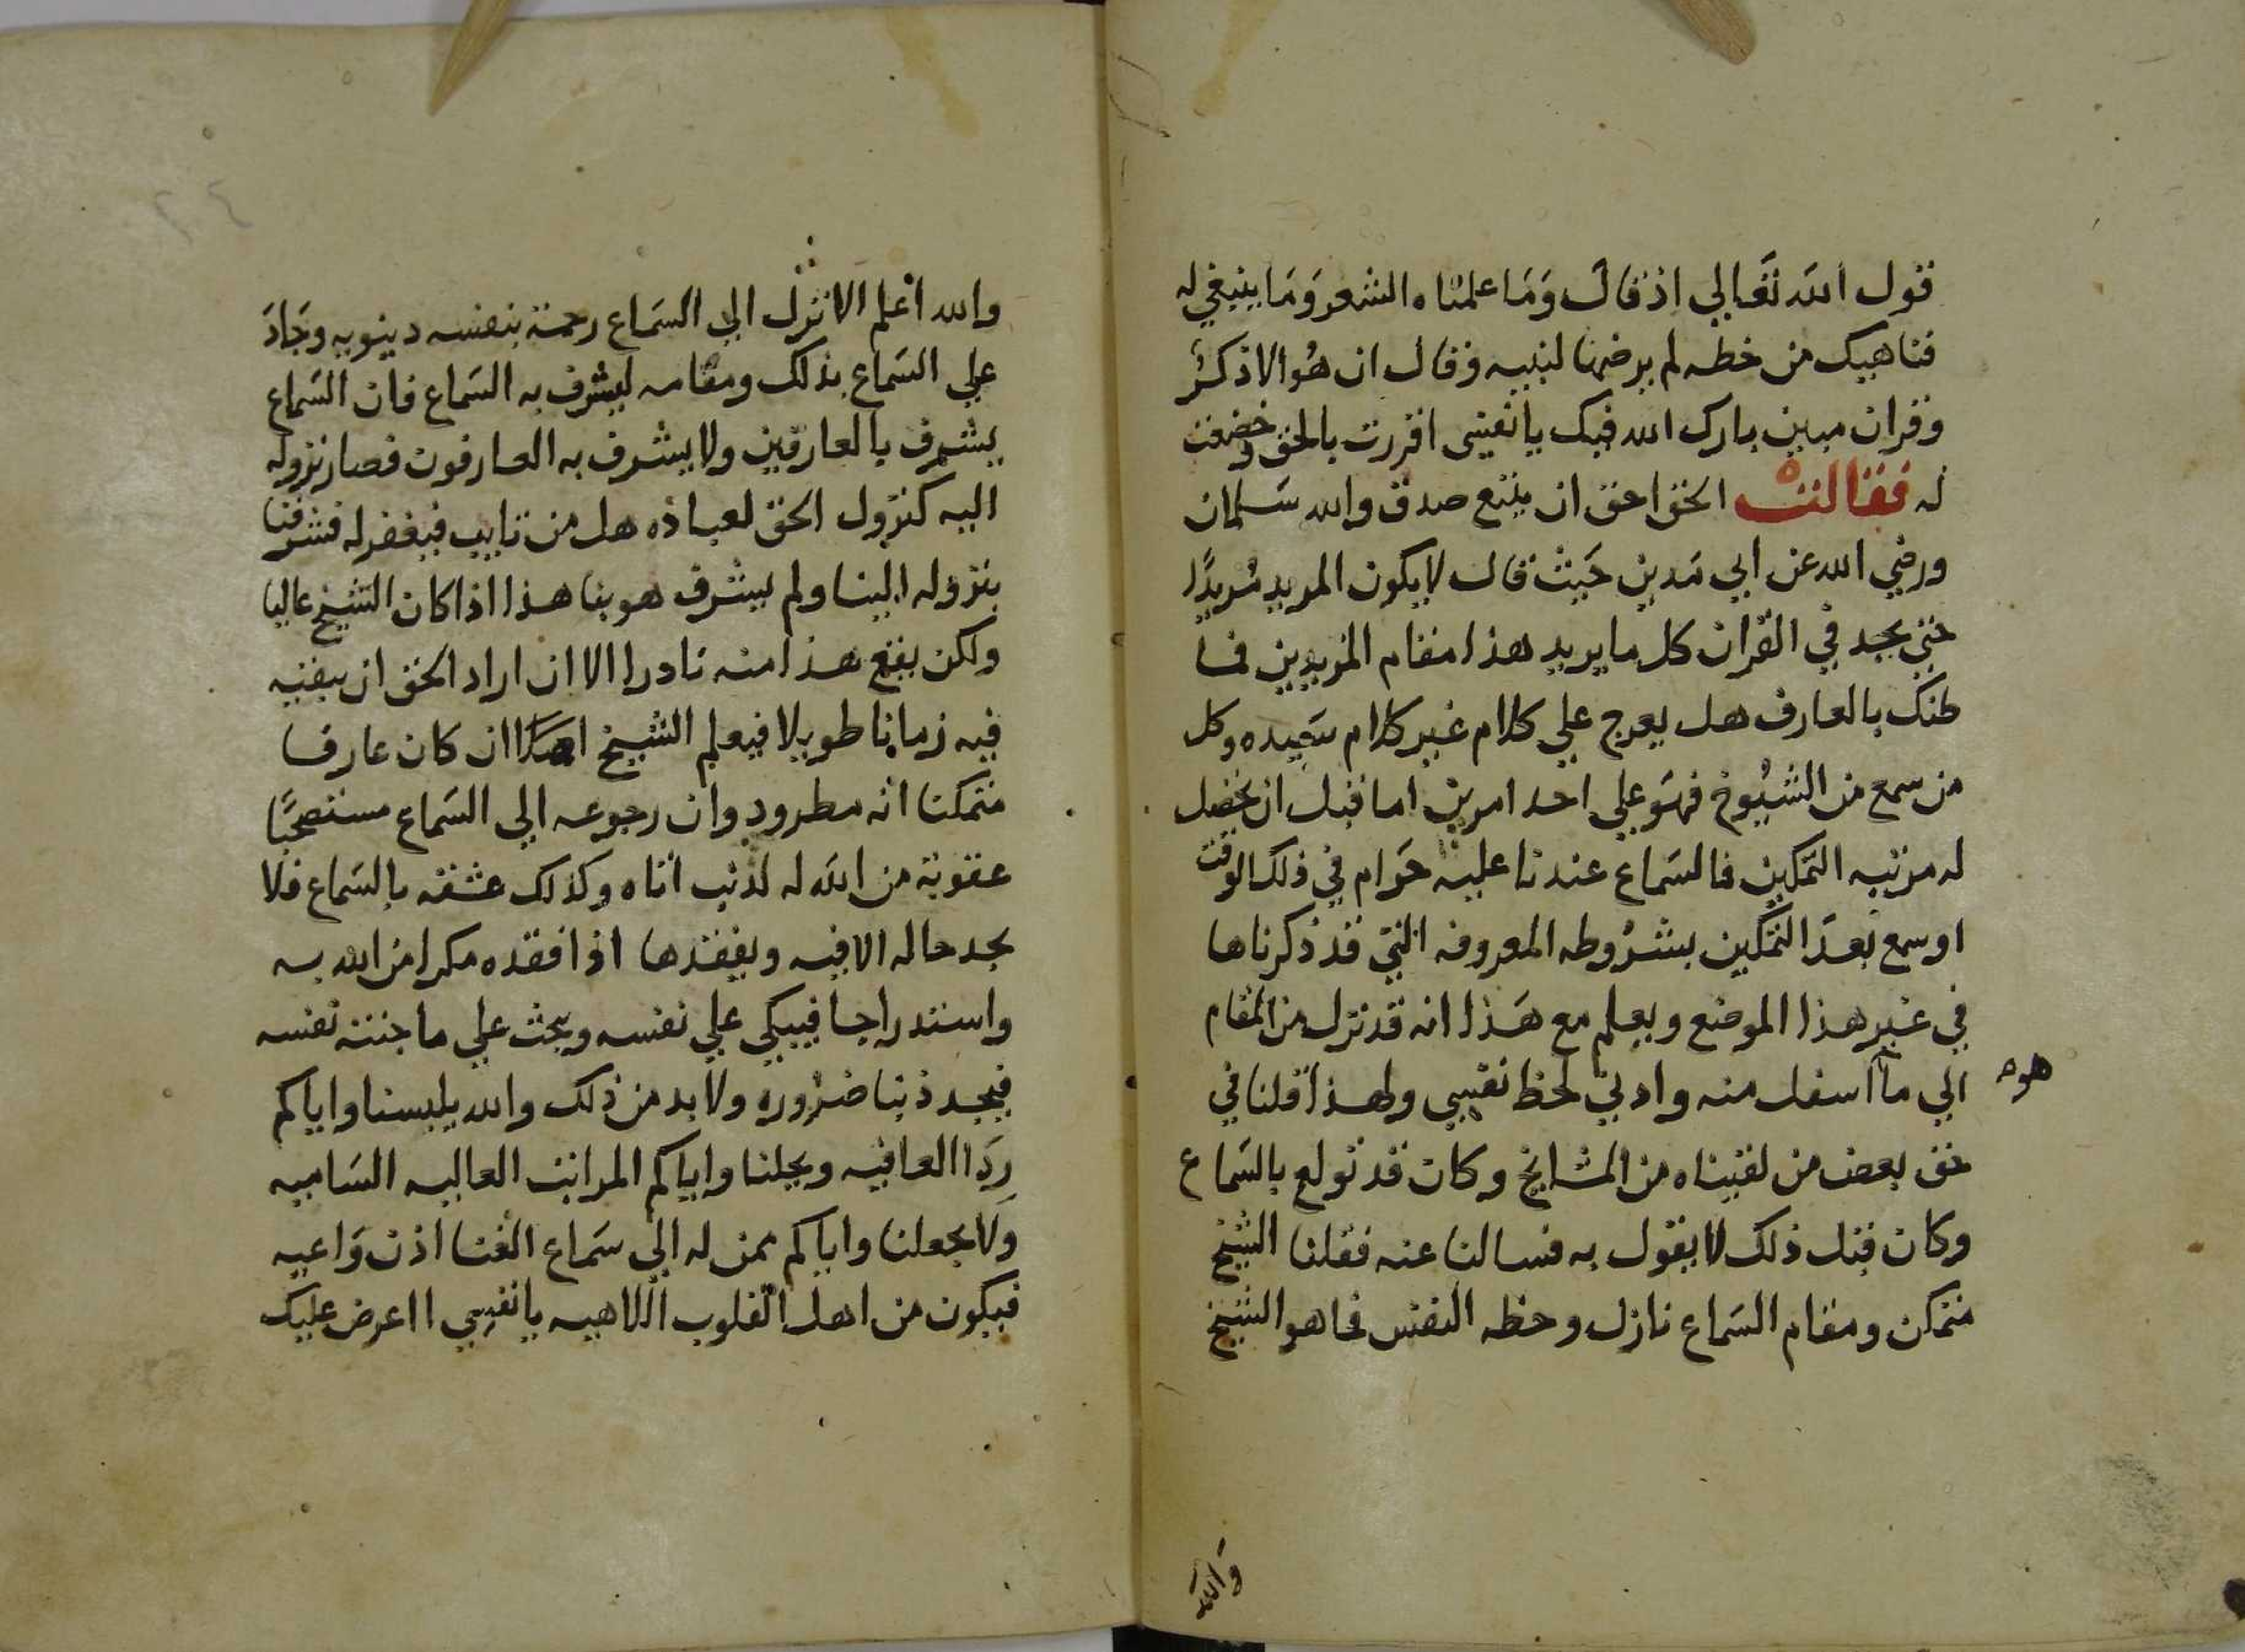 قول الله تعالي اذ قال وما علمناه الشعر وما ينبغي له
فناهيك من خطه لم يرضها لنبيه وقال ان هو الا ذكر
وقران مبين بارك الله فيك يا نفسي اقررت بالحق وخضعت
له فقالت الحق احق ان يتبع صدق والله سلمان
ورضي الله عن ابي مدين حيث قال لا يكون المريد مريدًا
حتي يجد في القران كل ما يريد هذا مقام المريدين فما
ظنك بالعارف هل يعرج علي كلام غير كلام سيده وكل
من سمع من الشيوخ فهو علي احد امرين اما قبل ان يحصل
له مرتبه التمكين فالسماع عندنا عليه حرام في ذلك الوقت
او سمع بعد التمكين بشروطه المعروفه التي قد ذكرناها
في غير هذا الموضع ويعلم مع هذا انه قد نزل من المقام
الي ما هو اسفل منه وادني لحظ نفسي ولهذا قلنا في
حق بعض من لقيناه من المشايخ وكان قد تولع بالسماع
وكان قبل ذلك لا يقول به فسالنا عنه فقلنا الشيخ
متمكن ومقام السماع نازل وحظه النفس فما هو الشيخ
والله
والله اعلم الا نزل الي السماع رحمة بنفسه دينويه وجاد
علي السماع بذلك ومقامه ليشرف به السماع فان السماع
يشرف بالعارفين ولا يشرف به العارفون فصار نزوله
اليه كنزول الحق لعباده هل من تايب فيغفر له فشرفنا
بنزوله الينا ولم يشرف هو بنا هذا اذا كان الشيخ عاليا
ولكن يقع هذا منه نادرا الا ان اراد الحق ان يبقيه
فيه زمانا طويلا فيعلم الشيخ اصلا ان كان عارفا
متمكنا انه مطرود وان رجوعه الي السماع مستصحبًا
عقوبة من الله له لذنب اتاه وكذلك عشقه بالسماع فلا
يجد حاله الا فيه ويفقدها اذا فقده مكرا من الله به
واستدراجا فيبكي علي نفسه ويبحث علي ما جنته نفسه
فيجد ذنبا ضروره ولا بد من ذلك والله يلبسنا واياكم
ردا العافيه ويحلنا واياكم المراتب العاليه الساميه
ولا يجعلنا واياكم ممن له الي سماع الغنا اذن واعيه
فيكون من اهل القلوب اللاهيه يا نفسي ااعرض عليك
٢٤